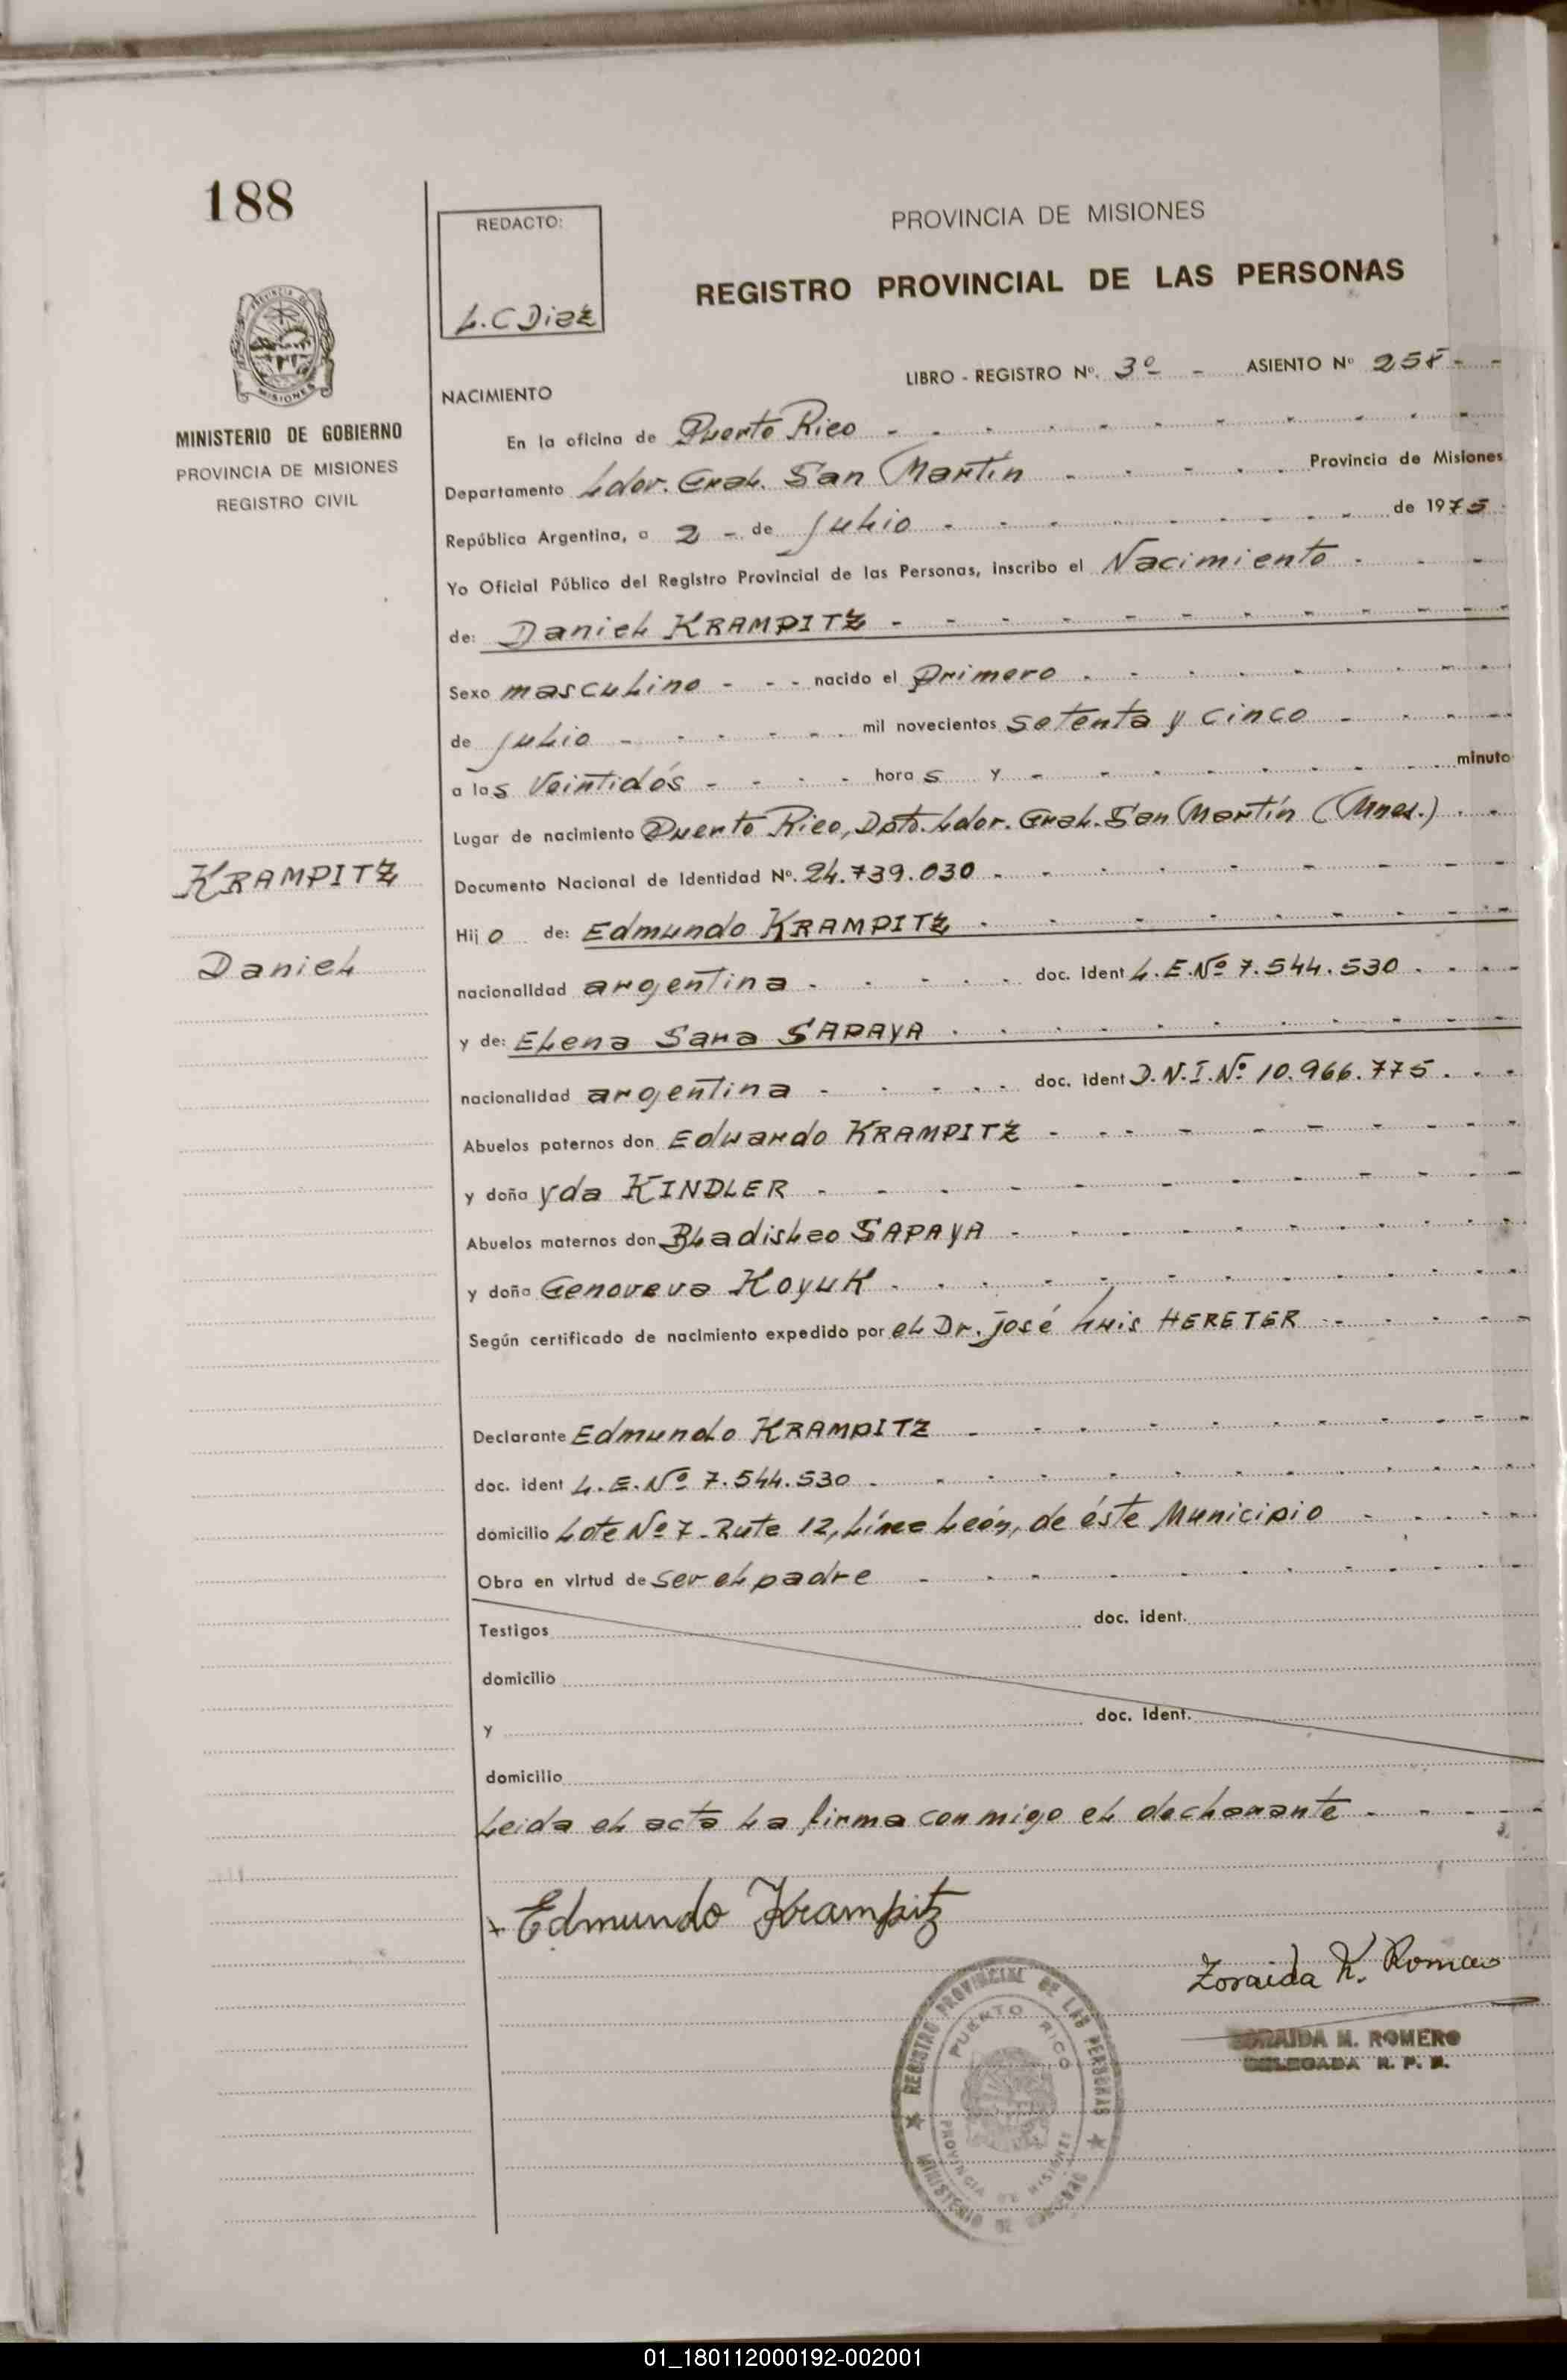 188
REDACTO:
L.C Diaz
PROVINCIA DE MISIONES
REGISTRO PROVINCIAL DE LAS PERSONAS
PROVINCIA DE
MISIONES
MINISTERIO DE GOBIERNO
PROVINCIA DE MISIONES
REGISTRO CIVIL
LIBRO - REGISTRO Nº. 3º - ASIENTO Nº 258 - -
NACIMIENTO
En la oficina de Puerto Rico
Departamento Ldor. Gral. San Martín Provincia de Misiones
República Argentina, a 2 - de Julio de 1975
Yo Oficial Público del Registro Provincial de las Personas, inscribo el Nacimiento
de: Daniel KRAMPITZ
Sexo masculino - - - nacido el primero
de julio mil novecientos setenta y cinco
a las veintidós horas y minuto
Lugar de nacimiento Puerto Rico, Dpto. Ldor. Gral. San Martín (Mnes.)
KRAMPITZ
Daniel
Documento Nacional de Identidad Nº. 24.739.030
Hijo de: Edmundo KRAMPITZ
nacionalidad argentina doc. ident L.E.Nº 7.544.530
y de: Elena Sara SAPAYA
nacionalidad argentina doc. ident D.N.I.Nº 10.966.775
Abuelos paternos don Eduardo KRAMPITZ
y doña Yda KINDLER
Abuelos maternos don Bladislao SAPAYA
y doña Genoveva KoyuK
Según certificado de nacimiento expedido por el Dr. José Luis HERETER
Declarante Edmundo KRAMPITZ
doc. ident L.E.Nº 7.544.530
domicilio Lote Nº 7-Ruta 12, Línea León, de éste Municipio
Obra en virtud de ser el padre
Testigos doc. ident.
domicilio
y doc. ident.
domicilio
Leida el acta la firma conmigo el declarante
+ Edmundo Krampitz
Zoraida M. Romero
ZORAIDA M. ROMERO
DELEGADA R. P. P.
REGISTRO PROVINCIAL DE LAS PERSONAS
PUERTO RICO
PROVINCIA DE MISIONES
MINISTERIO DE GOBIERNO
01_180112000192-002001